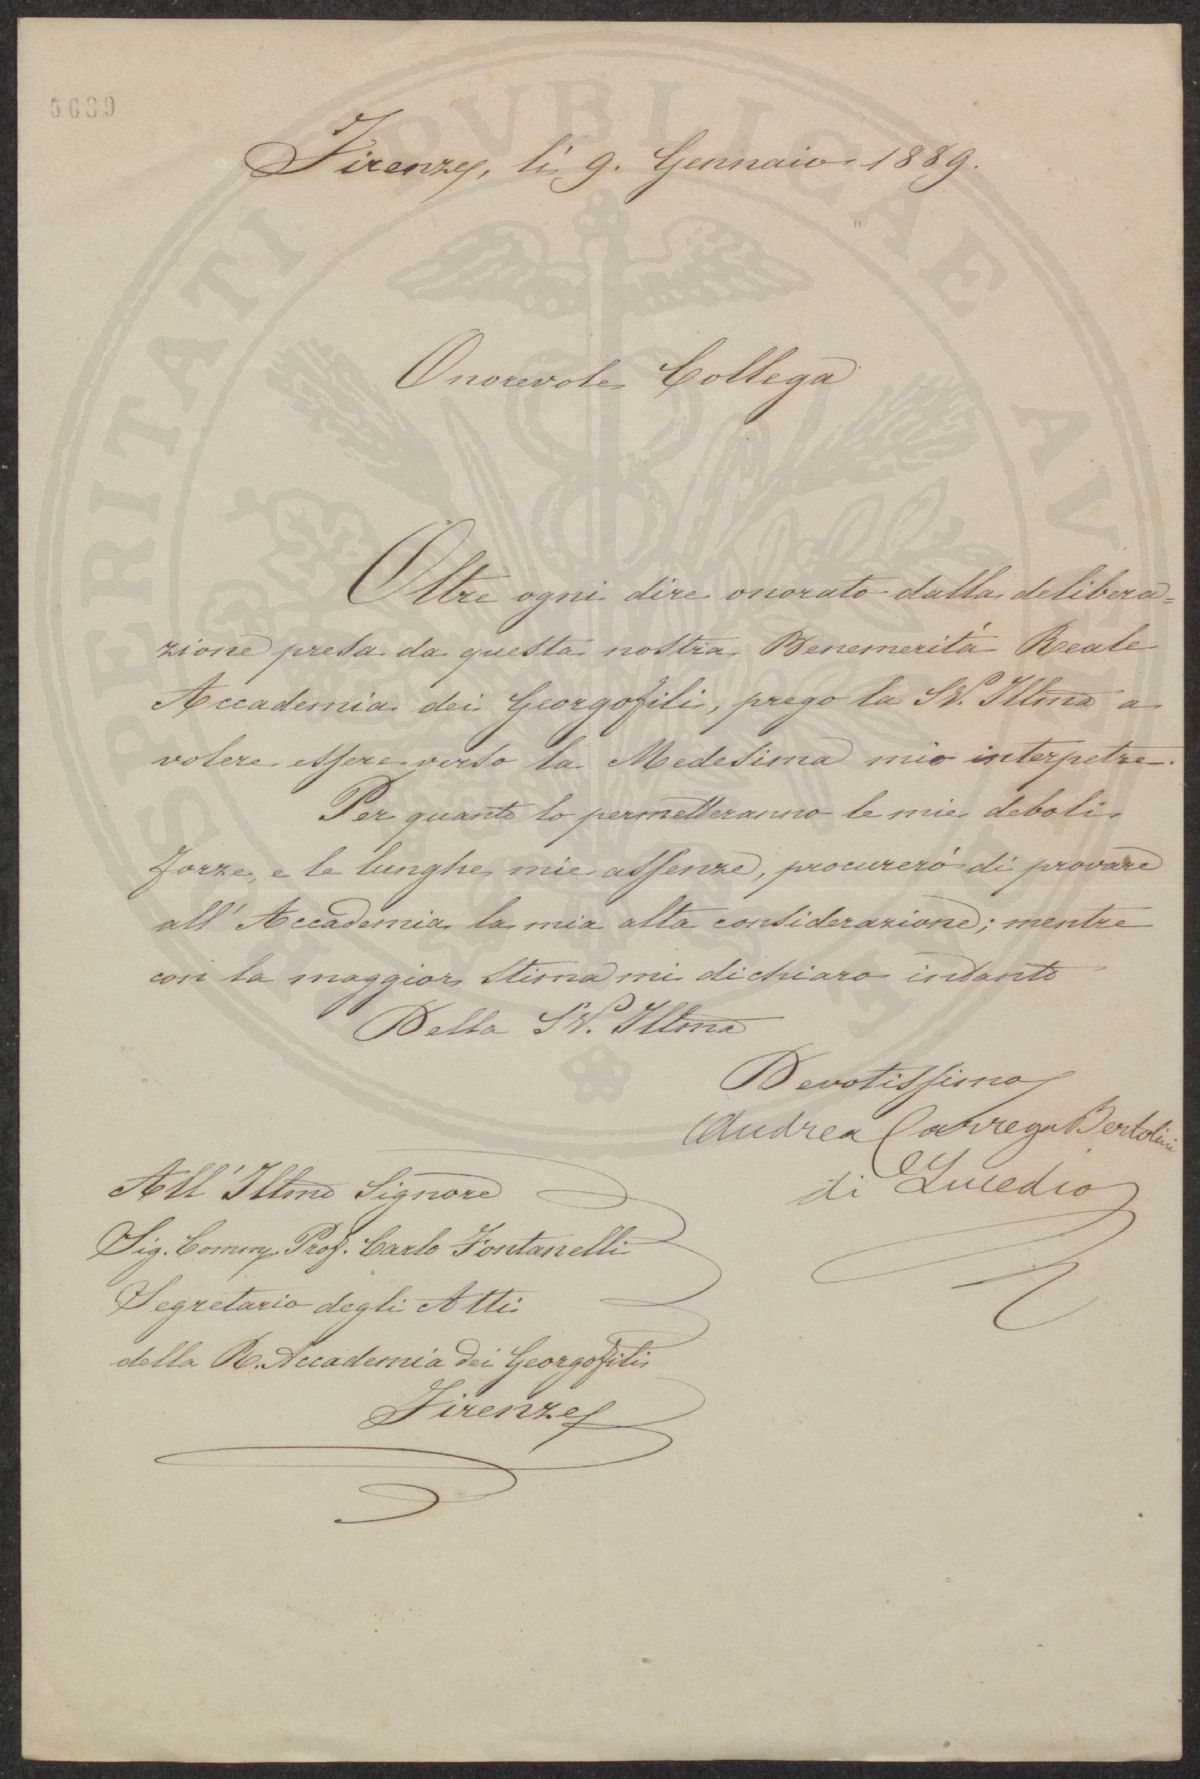 5689
Firenze, li 9. Gennaio 1889.
Onorevole Collega
Oltre ogni dire onorato dalla delibera=
zione presa da questa nostra Benemerita Reale
Accademia dei Georgofili, prego la S.V. Illma a
volere essere verso la Medesima mio interpetre.
Per quanto lo permetteranno le mie deboli
forze, e le lunghe mie assenze, procurerò di provare
all' Accademia la mia alta considerazione; mentre
con la maggior stima mi dichiaro intanto
Della S.V. Illma
Devotissimo
Andrea Carrega Bertolini
di Lucedio
All' Illmo Signore
Sig. Comm. Prof. Carlo Fontanelli
Segretario degli Atti
della R. Accademia dei Georgofili
Firenze
PROSPERITATI PVBLICAE AVGENDAE